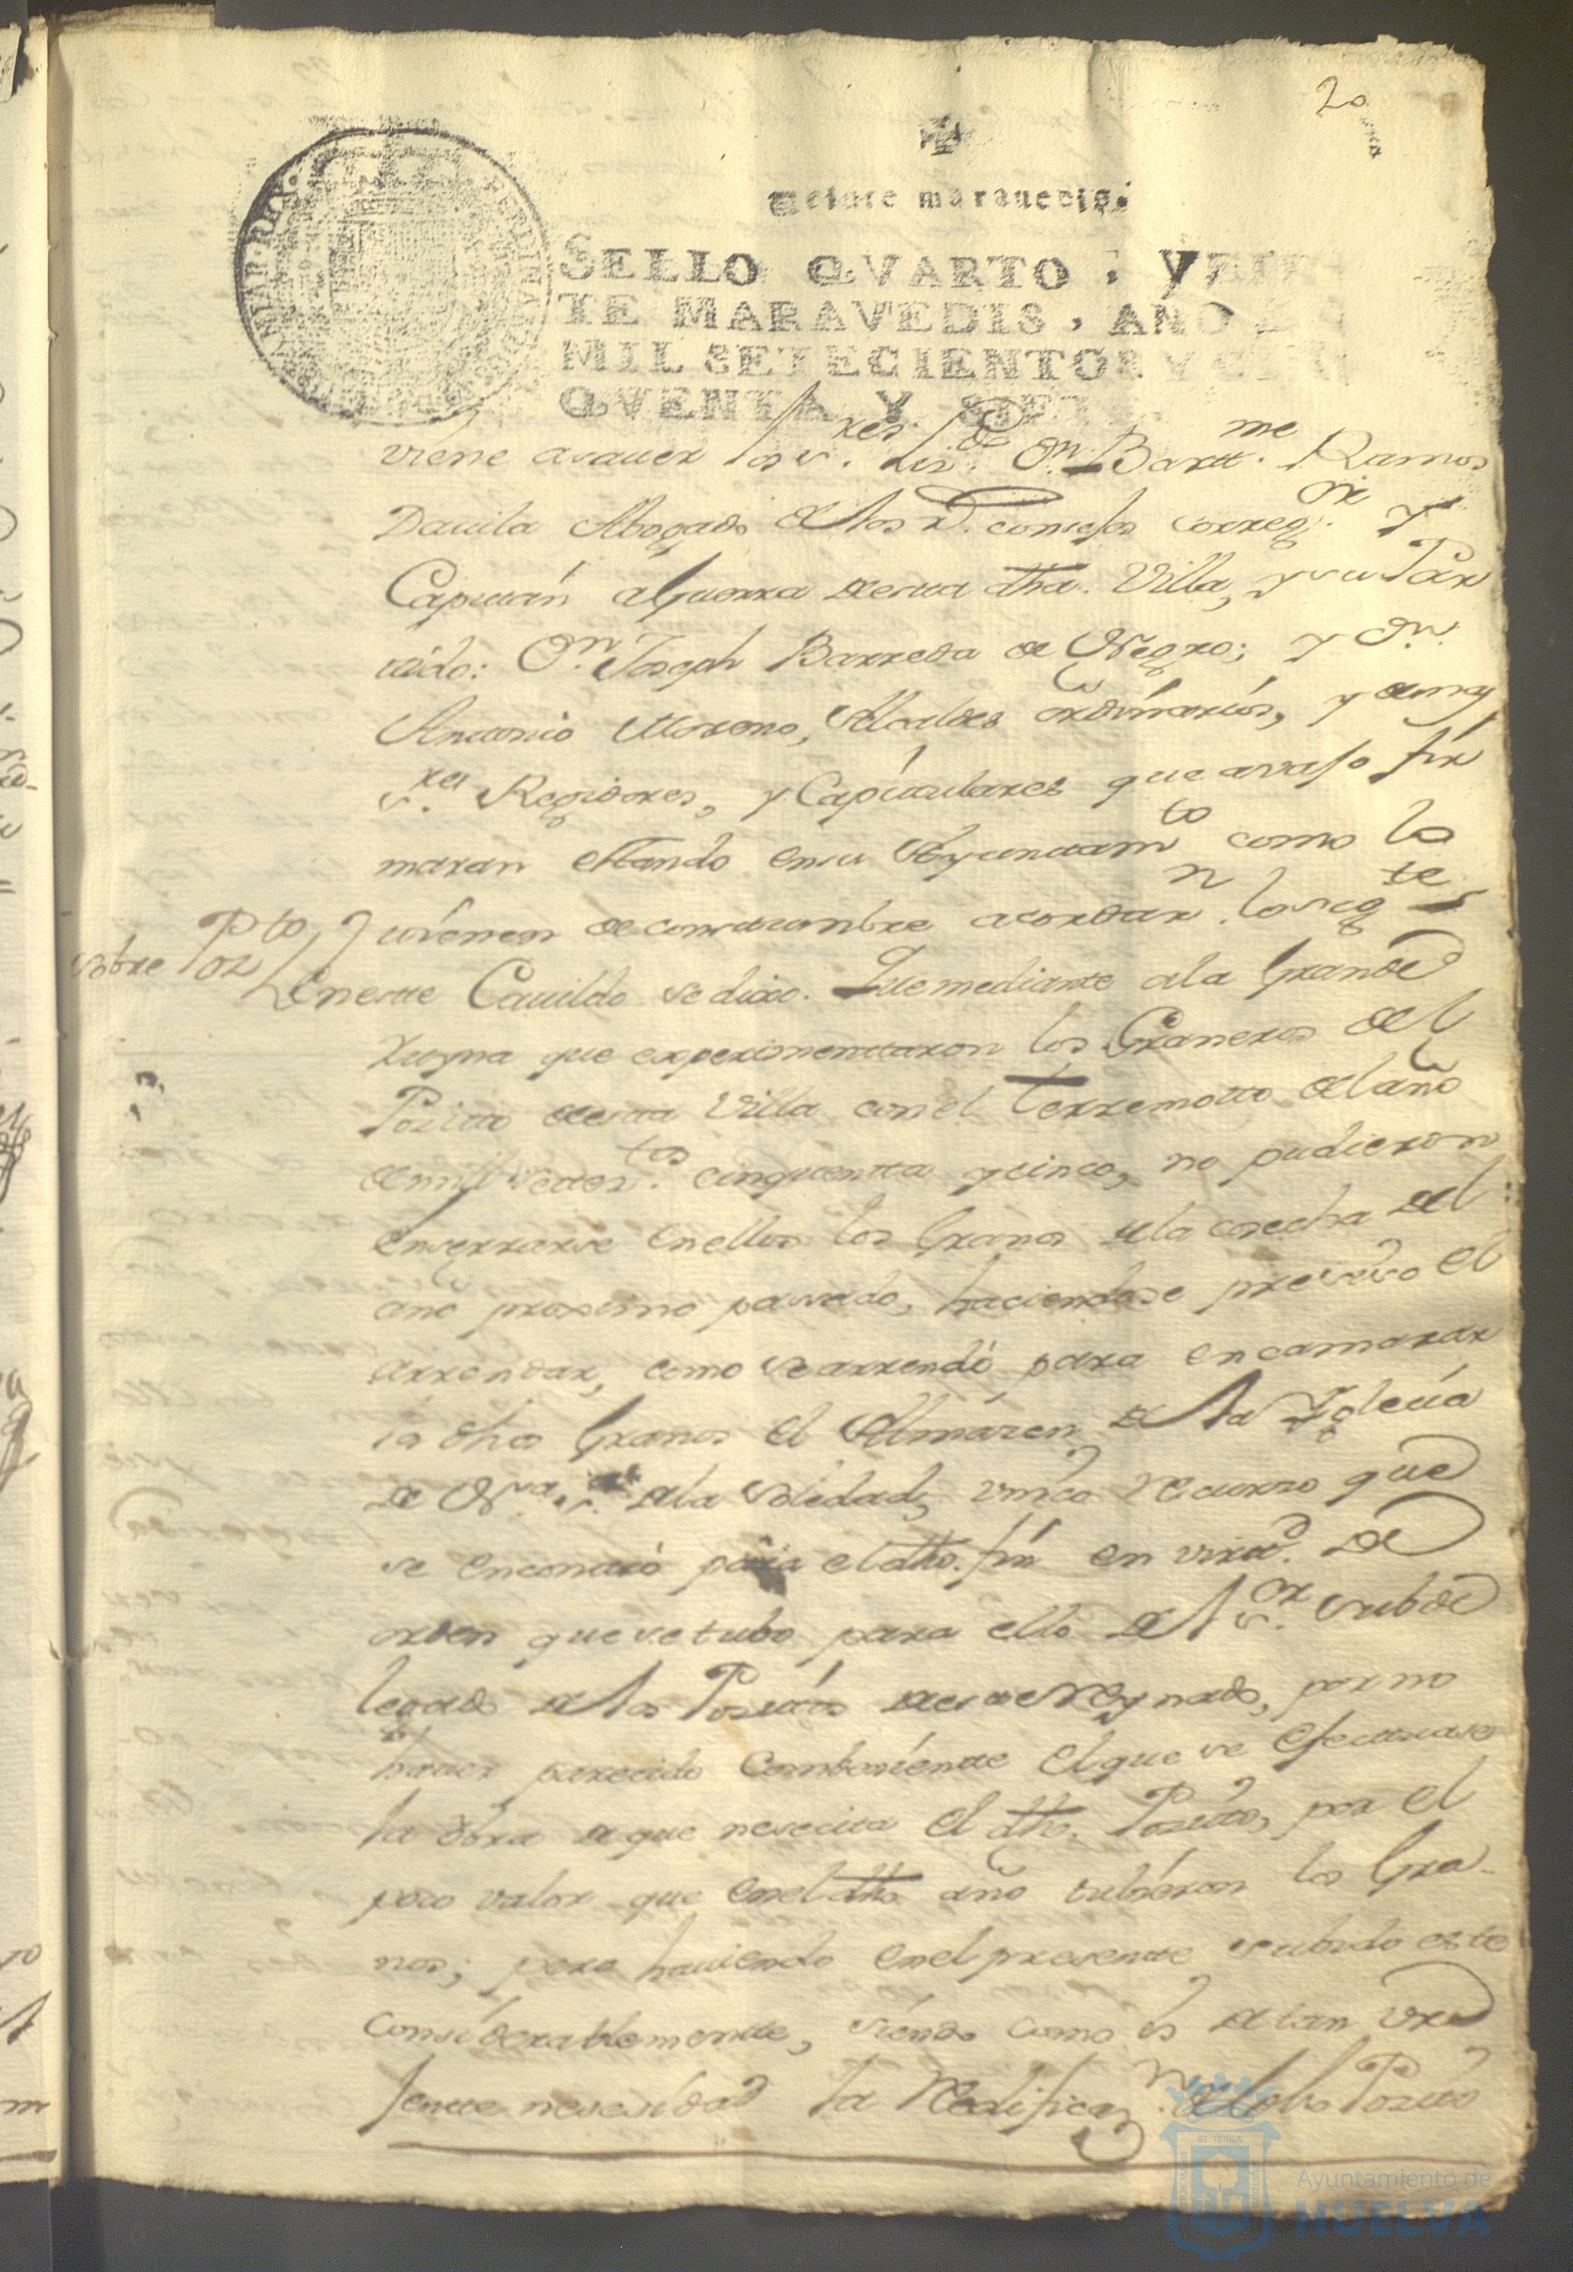 20
veinte maravedis.
SELLO QVARTO, VEIN
TE MARAVEDIS, AÑO
MIL SETECIENTOS Y CIN
QVENTA Y SIETE
viene asauer los s.res Liz.do Dn. Bartt.me Ramos
Dauila Abogado de los R.s consejos correg.or y
Capitán a Guerra de esta dha. Villa, y su Par
tido: Dn. Joseph Barreda de Negro; y Dn.
Antonio Moreno, Alcaldes ordinarios, y demas
s.res Regidores, y Capitulares que avajo fir
maran estando en su Ayuntam.to como lo
tienen de constumbre acordar.n lo sig.te
Pto.
sobre
En este Cauildo se dixo. Que mediante a la Grande
ruyna que experimentaron los Graneros del
Positto de esta Villa con el terremotto del año
de mill settez.tos cinquentta y cinco, no pudieron
enserrarse en ellos los Granos de la cosecha del
año proximo passado, haciendose presiso el
arrendar, como se arrendó para encamarar
los dhos Granos el Almazen de la Iglecia
de N.ra s.ra de la Soledad, unico recurso que
se encontró para el dho. fin en virtd. de
orden que se tubo para ello del s.or subde
legado de los Positos de este Reynado, por no
hauer parecido combeniente el que se efectuase
la obra de que nesecita el dho. Posito, por el
poco valor que en el dho año tubieron los Gra-
nos; pero hauiendo en el presente subido este
considerablemente, siendo como es de tan ur
jente nesesidad la Redificaz.n de dho Posito
Ayuntamiento de
HUELVA